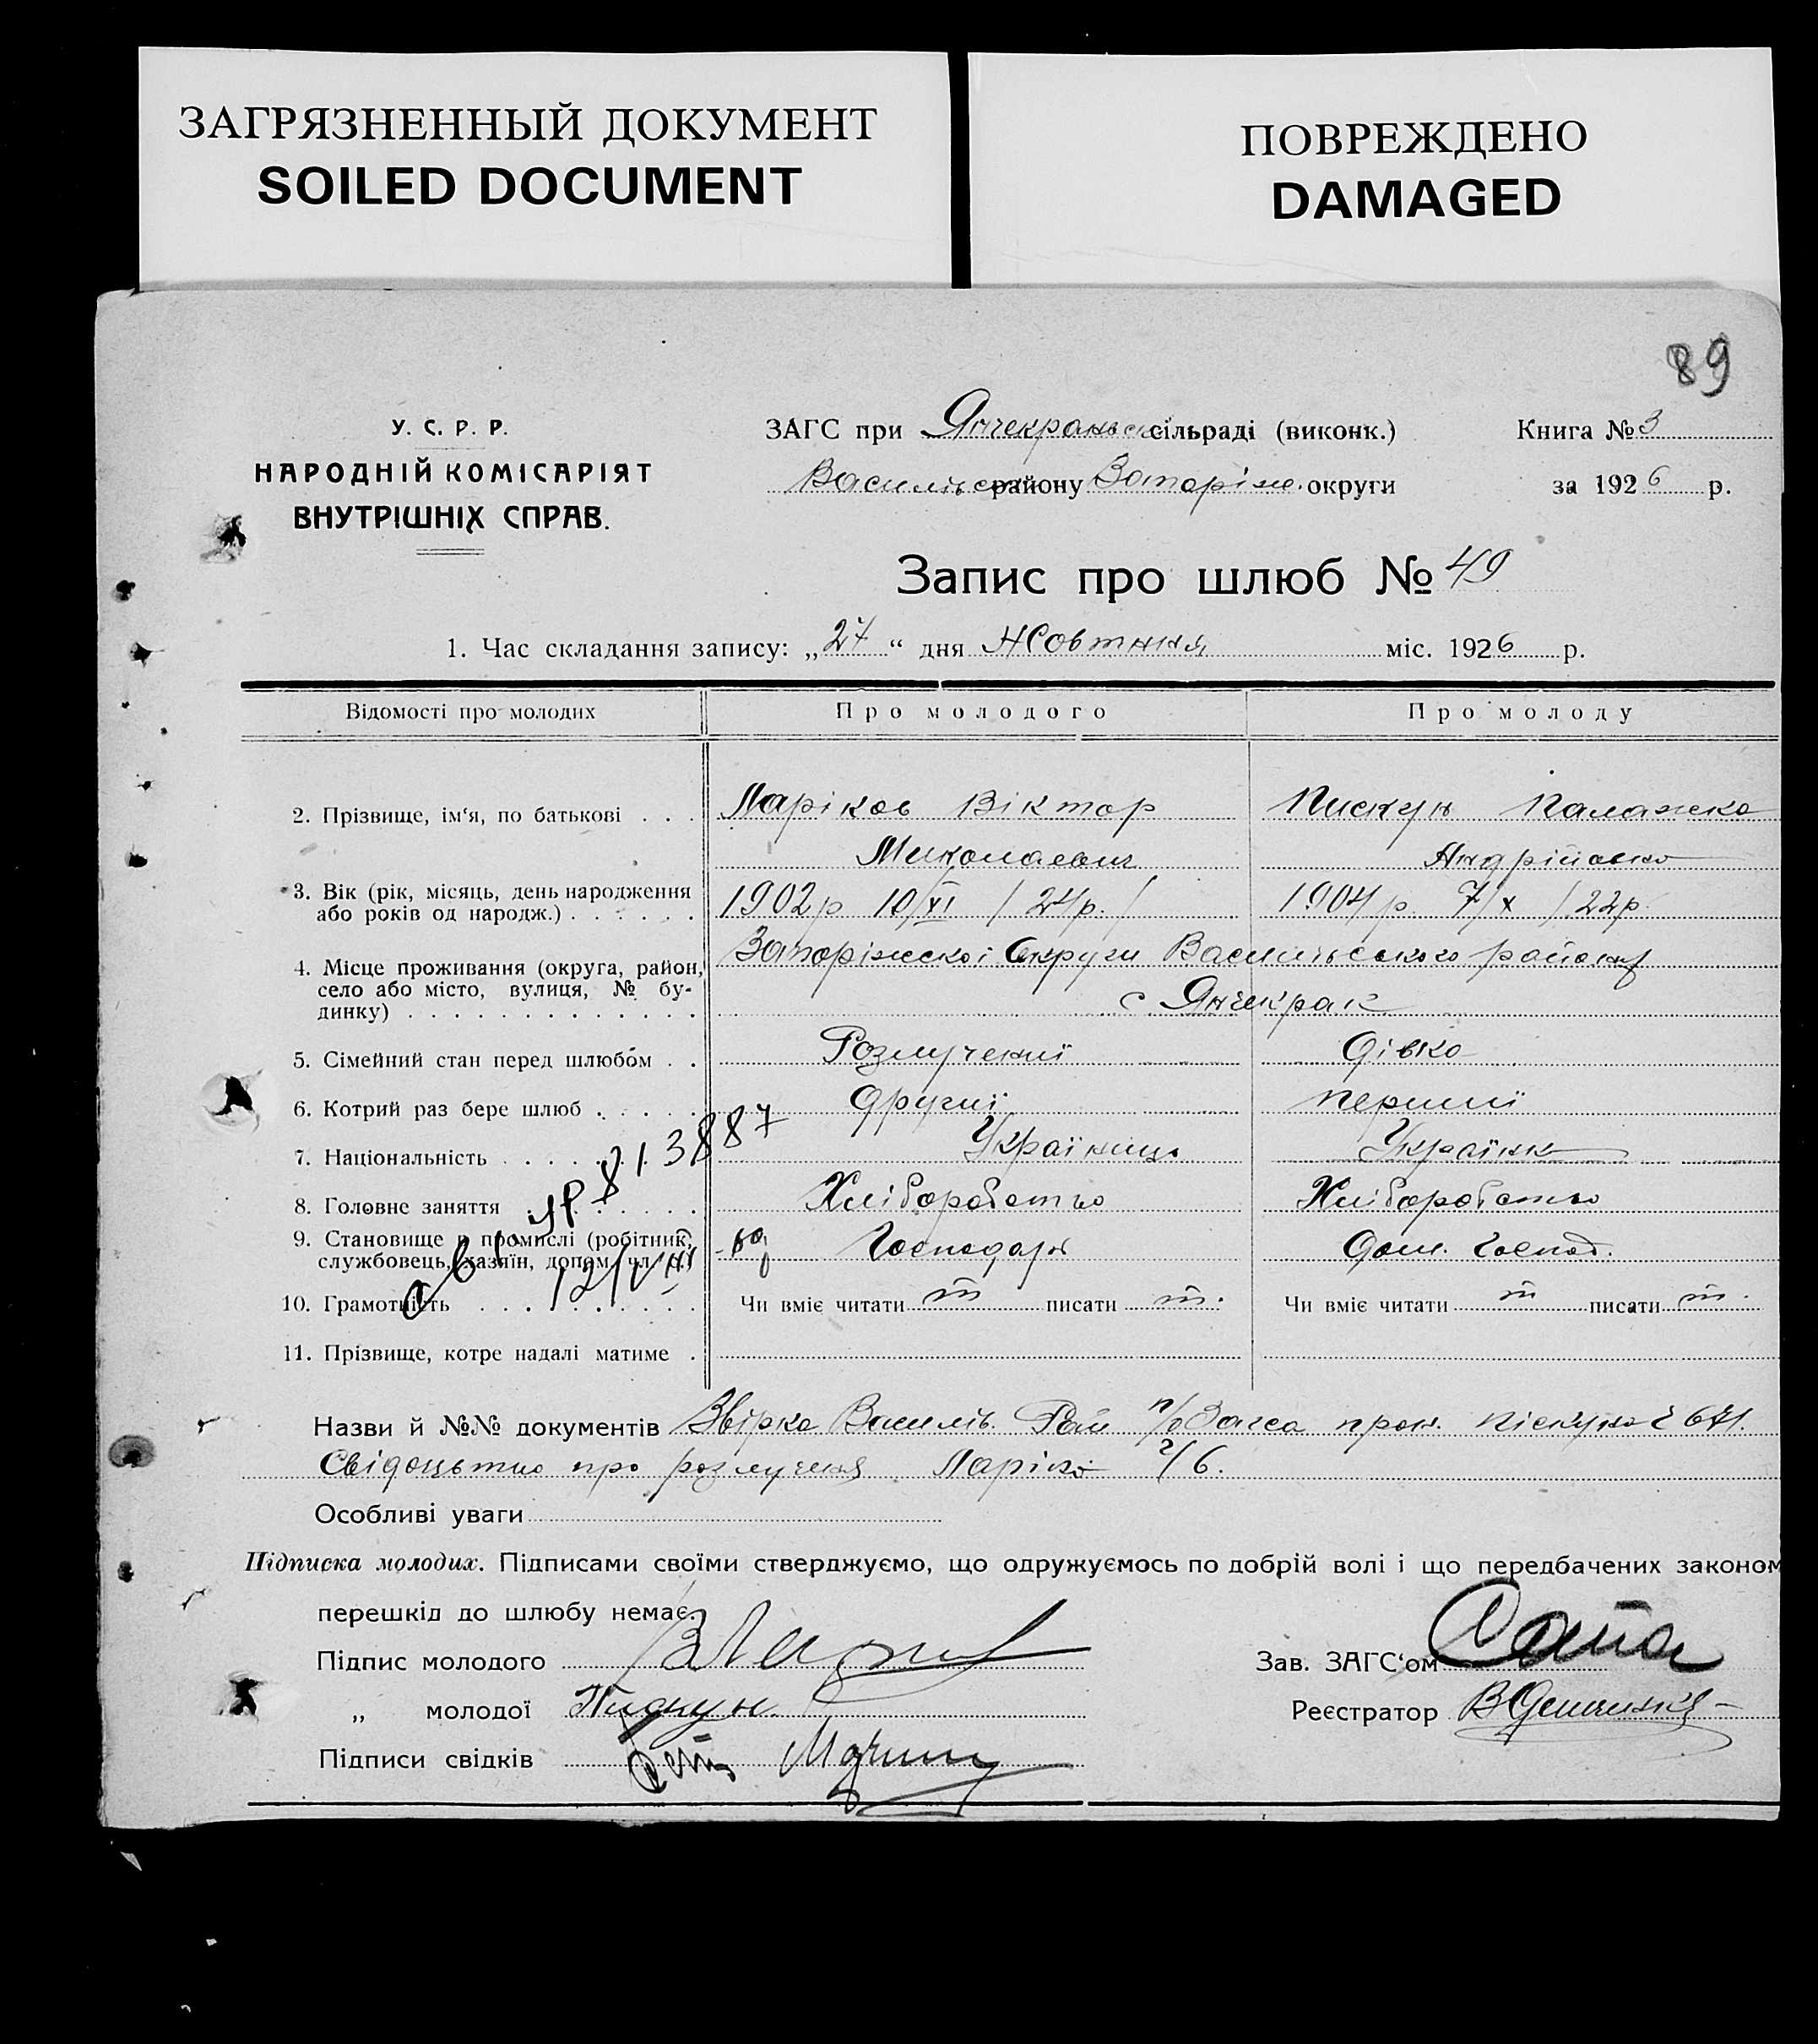 ЗАГРЯЗНЕННЫЙ ДОКУМЕНТ
SOILED DOCUMENT
ПОВРЕЖДЕНО
DAMAGED
89
У. С. Р. Р.
НАРОДНІЙ КОМІСАРІЯТ
ВНУТРІШНІХ СПРАВ.
ЗАГС при Янчекраньск сільраді (виконк.)
Василівськ району Запоріж. округи
Книга № 3
за 1926 р.
Запис про шлюб № 49
1. Час складання запису: „27“ дня Жовтня міс. 1926 р.
Відомості про молодих Про молодого Про молоду
2. Прізвище, ім‘я, по батькові . . . Ларіков Віктор Пискун Палажка
Миколаевич Андріівна
3. Вік (рік, місяць, день народження
або років од народж.) . . . . . . 1902 р 10/XI / 24 р. / 1904 р. 7/X / 22 р.
4. Місце проживання (округа, район, Запоріжскоі Округи Васильського району
село або місто, вулиця, № бу-
динку) . . . . . . . . . . . . . с. Янчекрак
5. Сімейний стан перед шлюбом . . Розлучений Дівка
6. Котрий раз бере шлюб . . . . . Другий перший
7. Національність . . . . . . . Українець Українка
813887
8. Головне заняття . . . . . . . Хліборобство Хліборобство
9. Становище в промислі (робітник,
службовець, хазяїн, допом. чл. Господарь Дом. Господ.
10. Грамотність . . . . . . . . . . Чи вміє читати т писати т. Чи вміє читати т писати т.
11. Прізвище, котре надалі матиме .
Назви й №№ документів Звірка Василів. Рай п/о Загса 671.
Свідоцьтво про розлучення 2/6.
Особливі уваги
Підписка молодих. Підписами своїми стверджуємо, що одружуємось по добрій волі і що передбачених законом
перешкід до шлюбу немає.
Підпис молодого
Зав. ЗАГС‘ом
„ молодої Пискун
Реєстратор
Підписи свідків